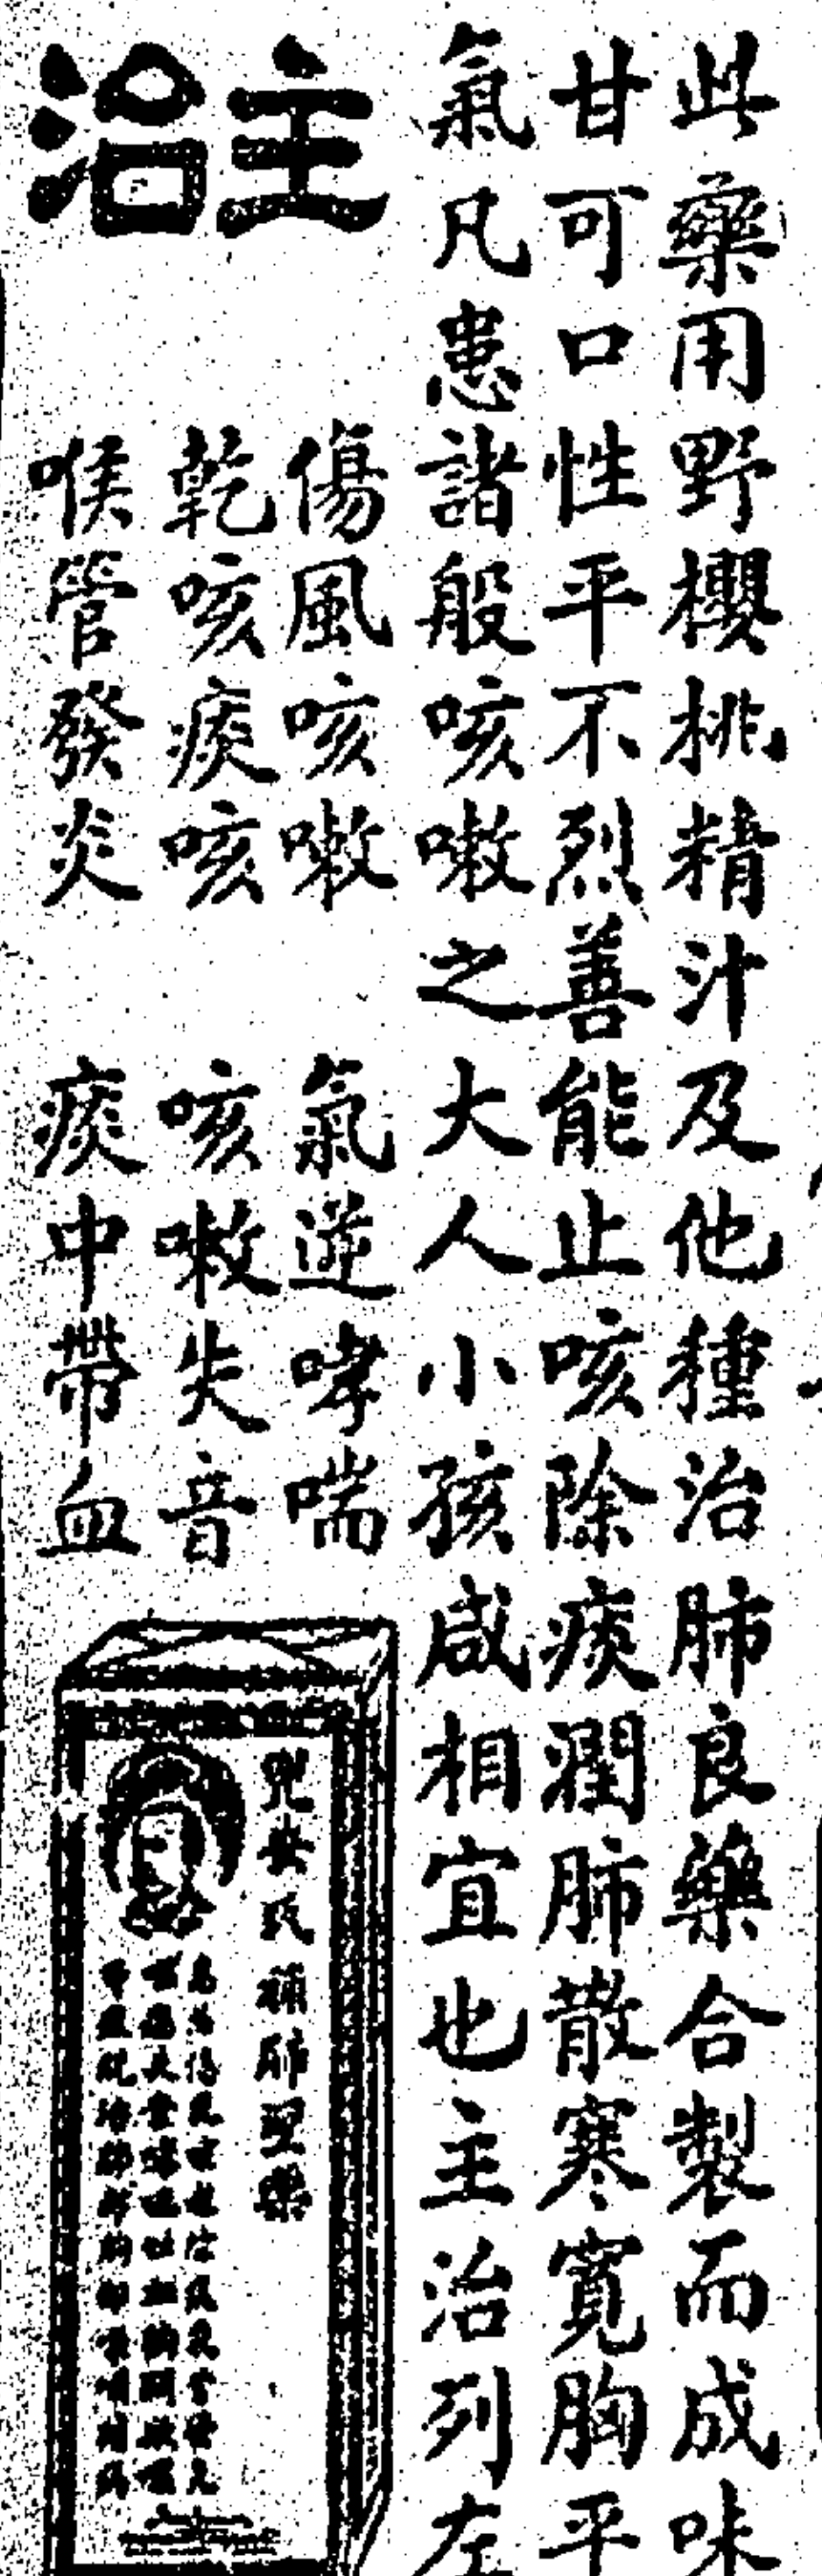 此藥用野櫻桃精汁及他種治肺良藥合製而成味
甘可口性平不烈善能止咳除痰潤肺散寒寬胸平
氣凡患諸般咳嗽之大人小孩咸相宜也主治列左
主治
傷風咳嗽
氣逆哮喘
乾咳痰咳
咳嗽失音
喉管發炎
痰中帶血
兜安氏補肺聖藥